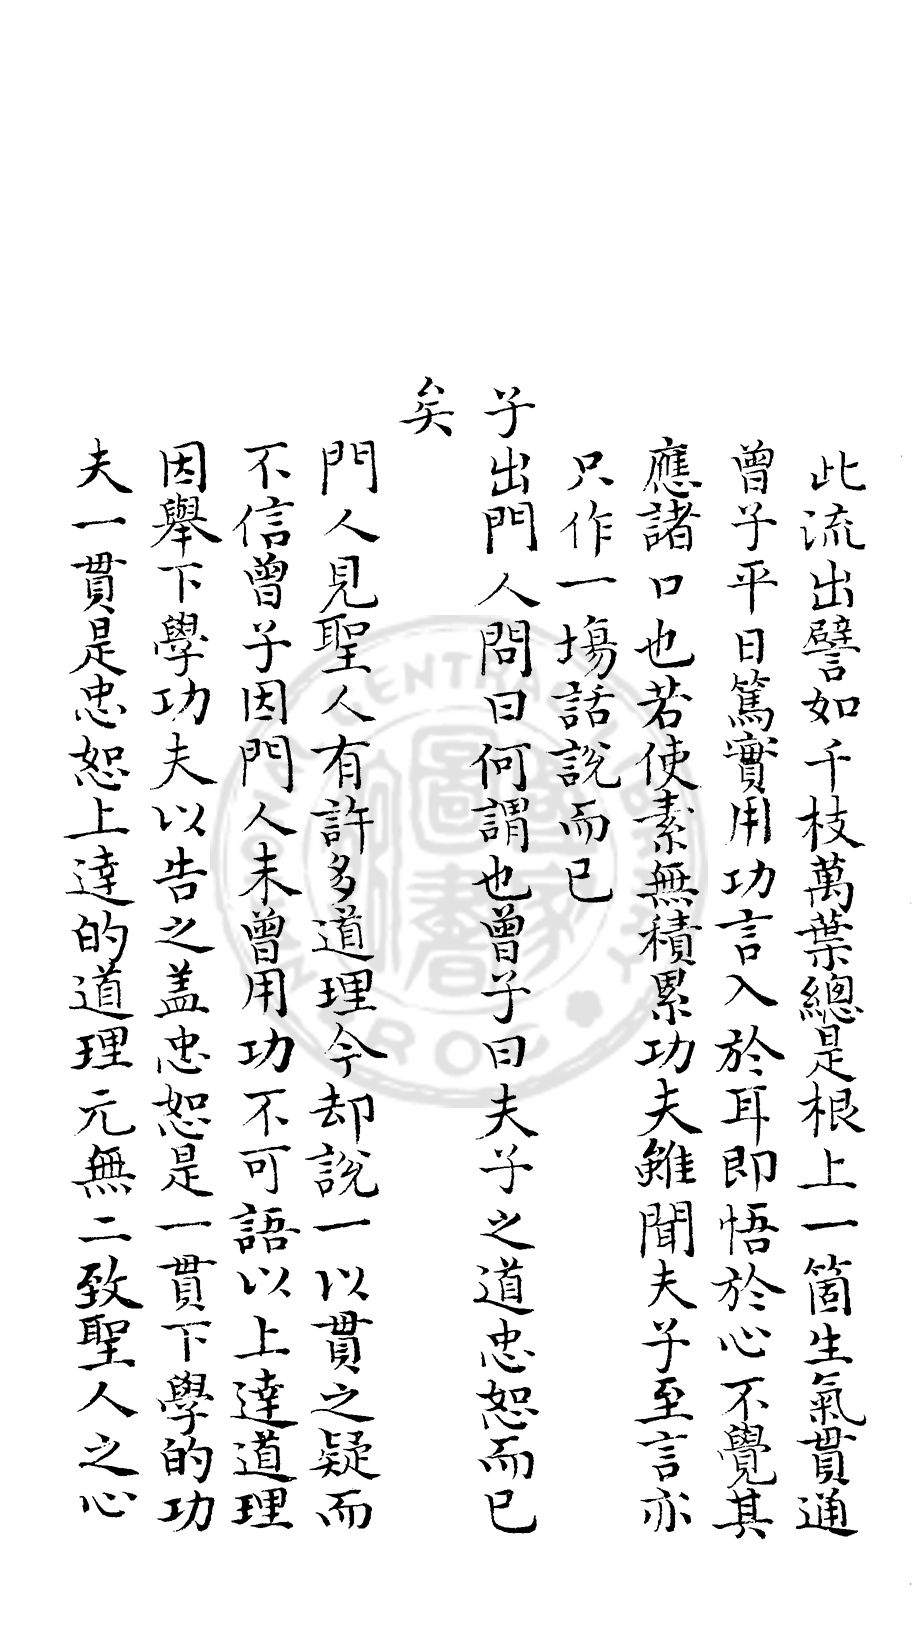 此流出譬如千枝萬葉總是根上一箇生氣貫通
曾子平日篤實用功言入於耳即悟於心不覺其
應諸口也若使素無積累功夫雖聞夫子至言亦
只作一塲話說而已
子出門人問曰何謂也曾子曰夫子之道忠恕而已
矣
門人見聖人有許多道理今却說一以貫之疑而
不信曾子因門人未曾用功不可語以上達道理
因舉下學功夫以告之盖忠恕是一貫下學的功
夫一貫是忠恕上達的道理元無二致聖人之心